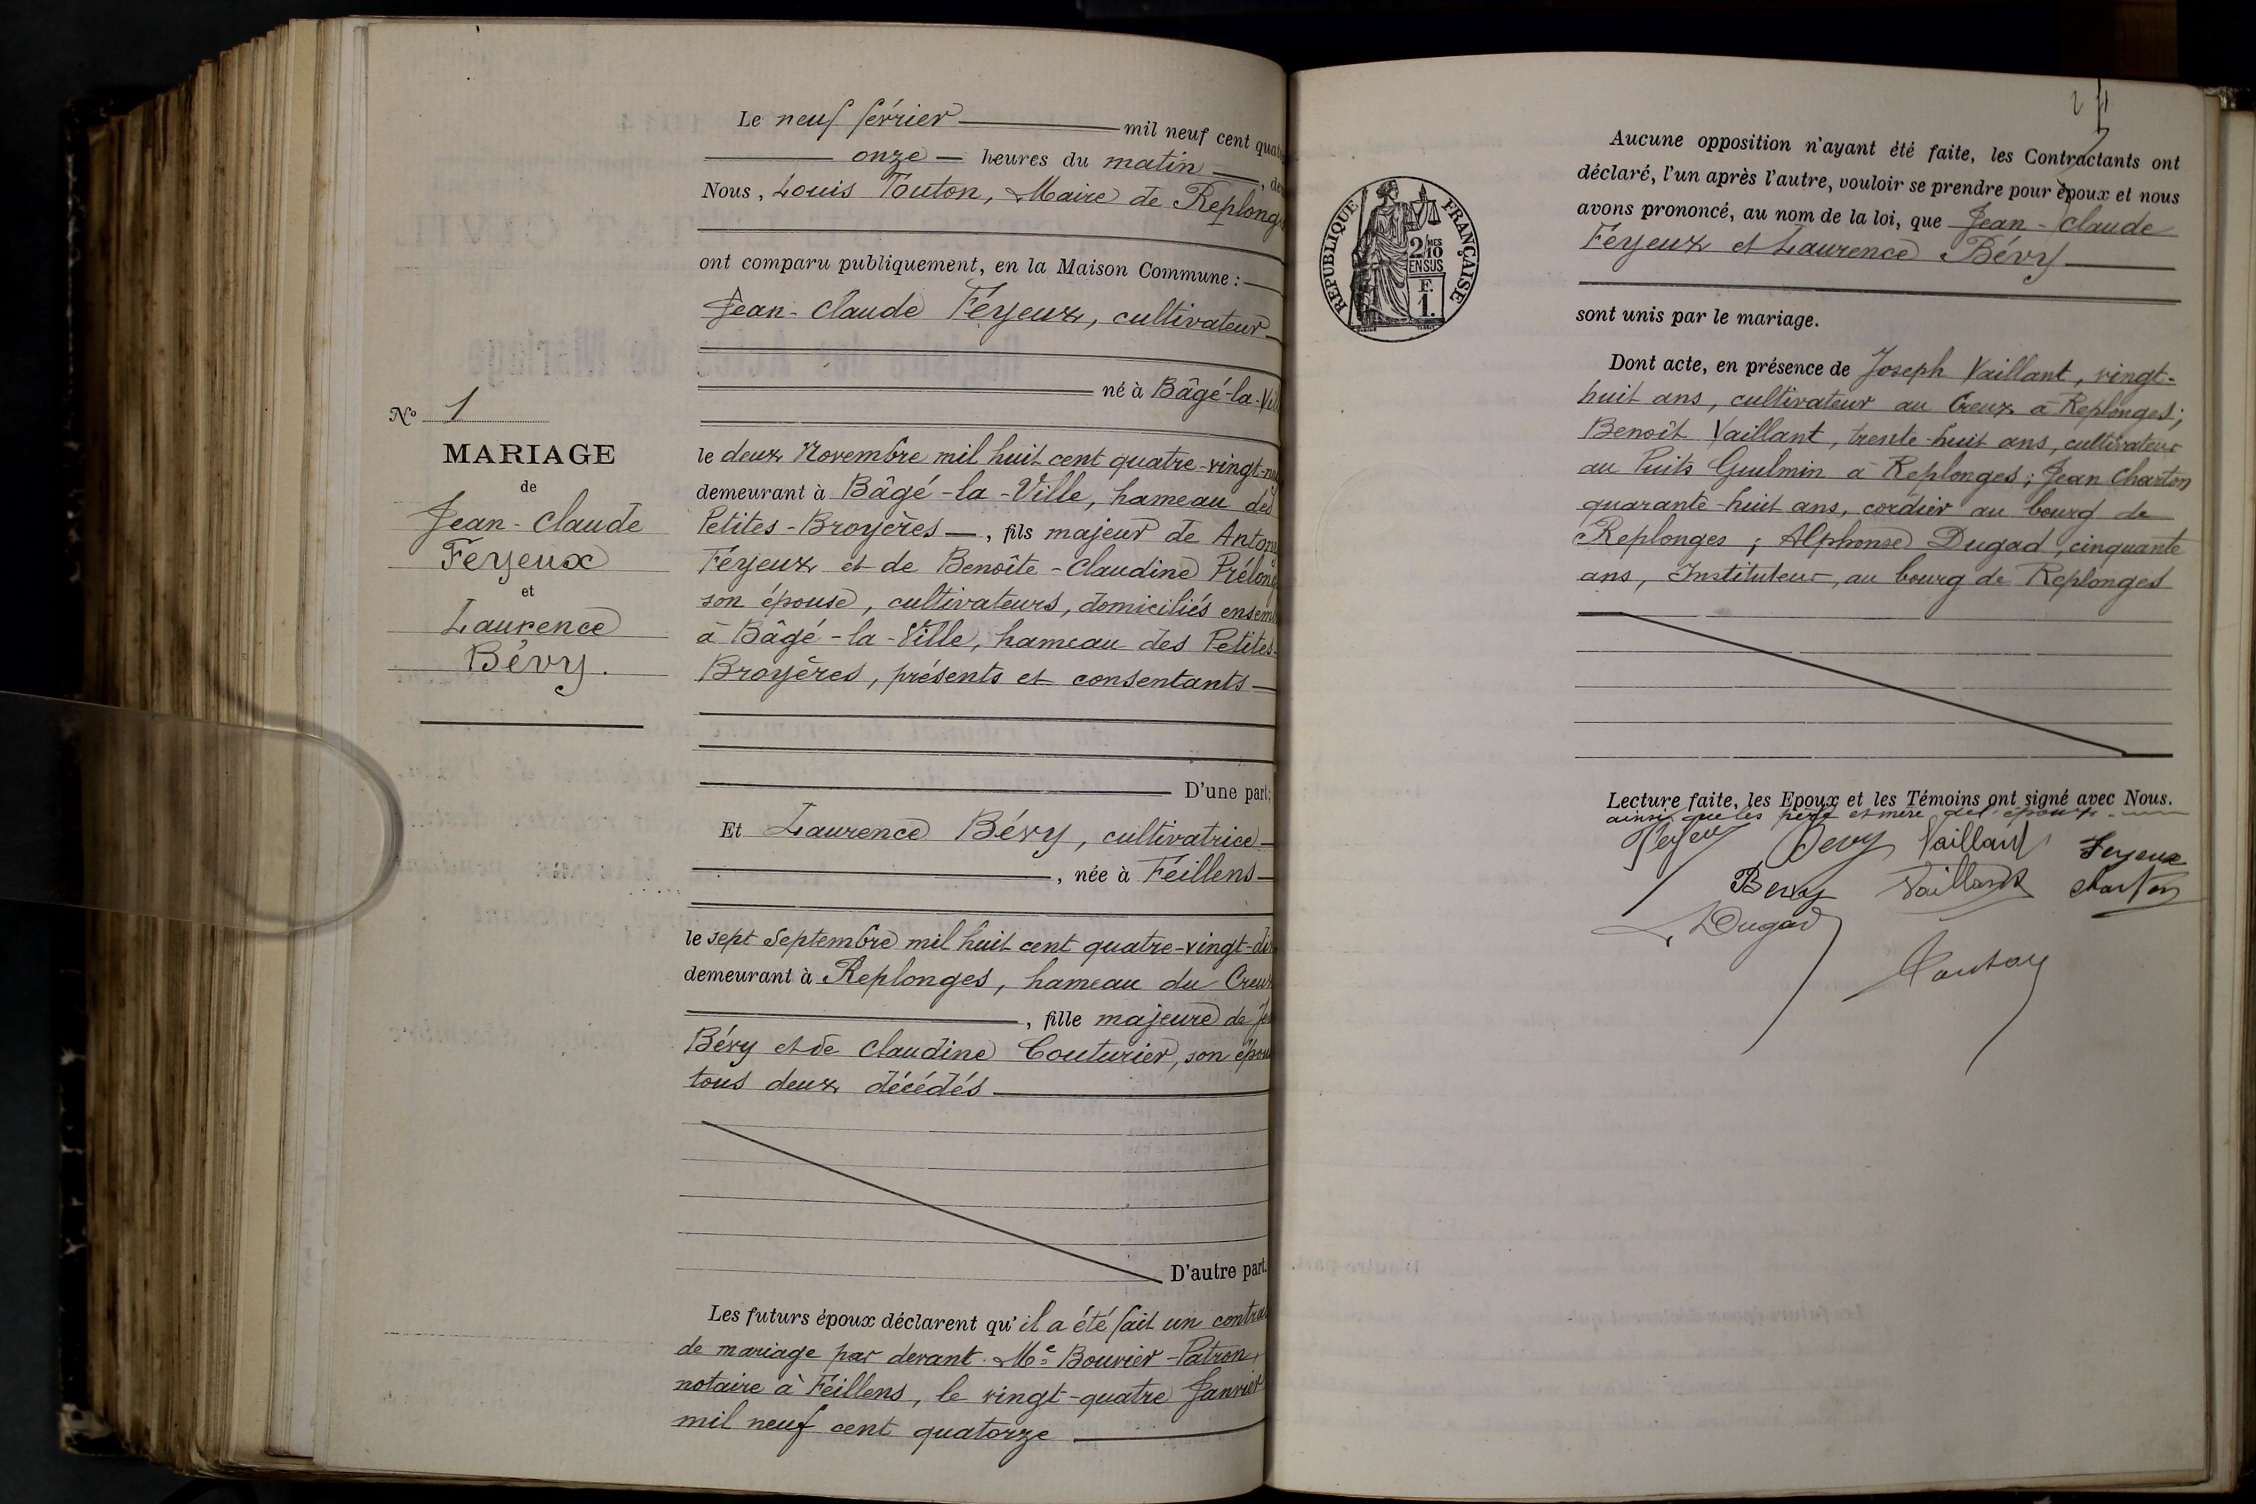 Le neuf février mil neuf cent
onze heures du matin
Nous, Louis Touton, Maire de
ont comparu publiquement, en la Maison Commune :
Jean-Claude Féyeux, cultivateur
né à Bâgé-la-
le deux Novembre mil huit cent quatre-vingt-
demeurant à Bâgé-la-Ville, hameau des
Petites-Broyères, fils majeur de
Féyeux et de Benoîte-Claudine
son épouse, cultivateurs, domiciliés
à Bâgé-la-Ville, hameau des Petites-
Broyères, présents et consentants
D'une part;
Et Laurence Bévy, cultivatrice
, née à Féillens
le sept Septembre mil huit cent quatre-vingt-
demeurant à Replonges, hameau du
, fille majeure de
Bévy et de Claudine Couturier, son
tous deux décédés
D'autre part.
Les futurs époux déclarent qu'il a été fait un
de mariage par devant Me Bouvier-Patron,
notaire à Féillens, le vingt-quatre Janvier
mil neuf cent quatorze
No 1
MARIAGE
de
Jean-Claude
Feyeux
et
Laurence
Bévy.
RÉPUBLIQUE FRANÇAISE
2/10MES
EN SUS
F.
1.
Aucune opposition n'ayant été faite, les Contractants ont
déclaré, l'un après l'autre, vouloir se prendre pour époux et nous
avons prononcé, au nom de la loi, que Jean-Claude
Féyeux et Laurence Bévy
sont unis par le mariage.
Dont acte, en présence de Joseph Vaillant, vingt-
huit ans, cultivateur au Creux à Replonges;
Benoît Vaillant, trente-huit ans, cultivateur
au Puits Guulmin à Replonges; Jean Charton
quarante-huit ans, cordier au bourg de
Replonges; Alphonse Dugad, cinquante
ans, Instituteur, au bourg de Replonges
Lecture faite, les Epoux et les Témoins ont signé avec Nous.
ainsi que les père et mère de l'époux.
Feyeux Bevy Vaillant Feyeux
Bevy Vaillant Charton
Dugad
Touton